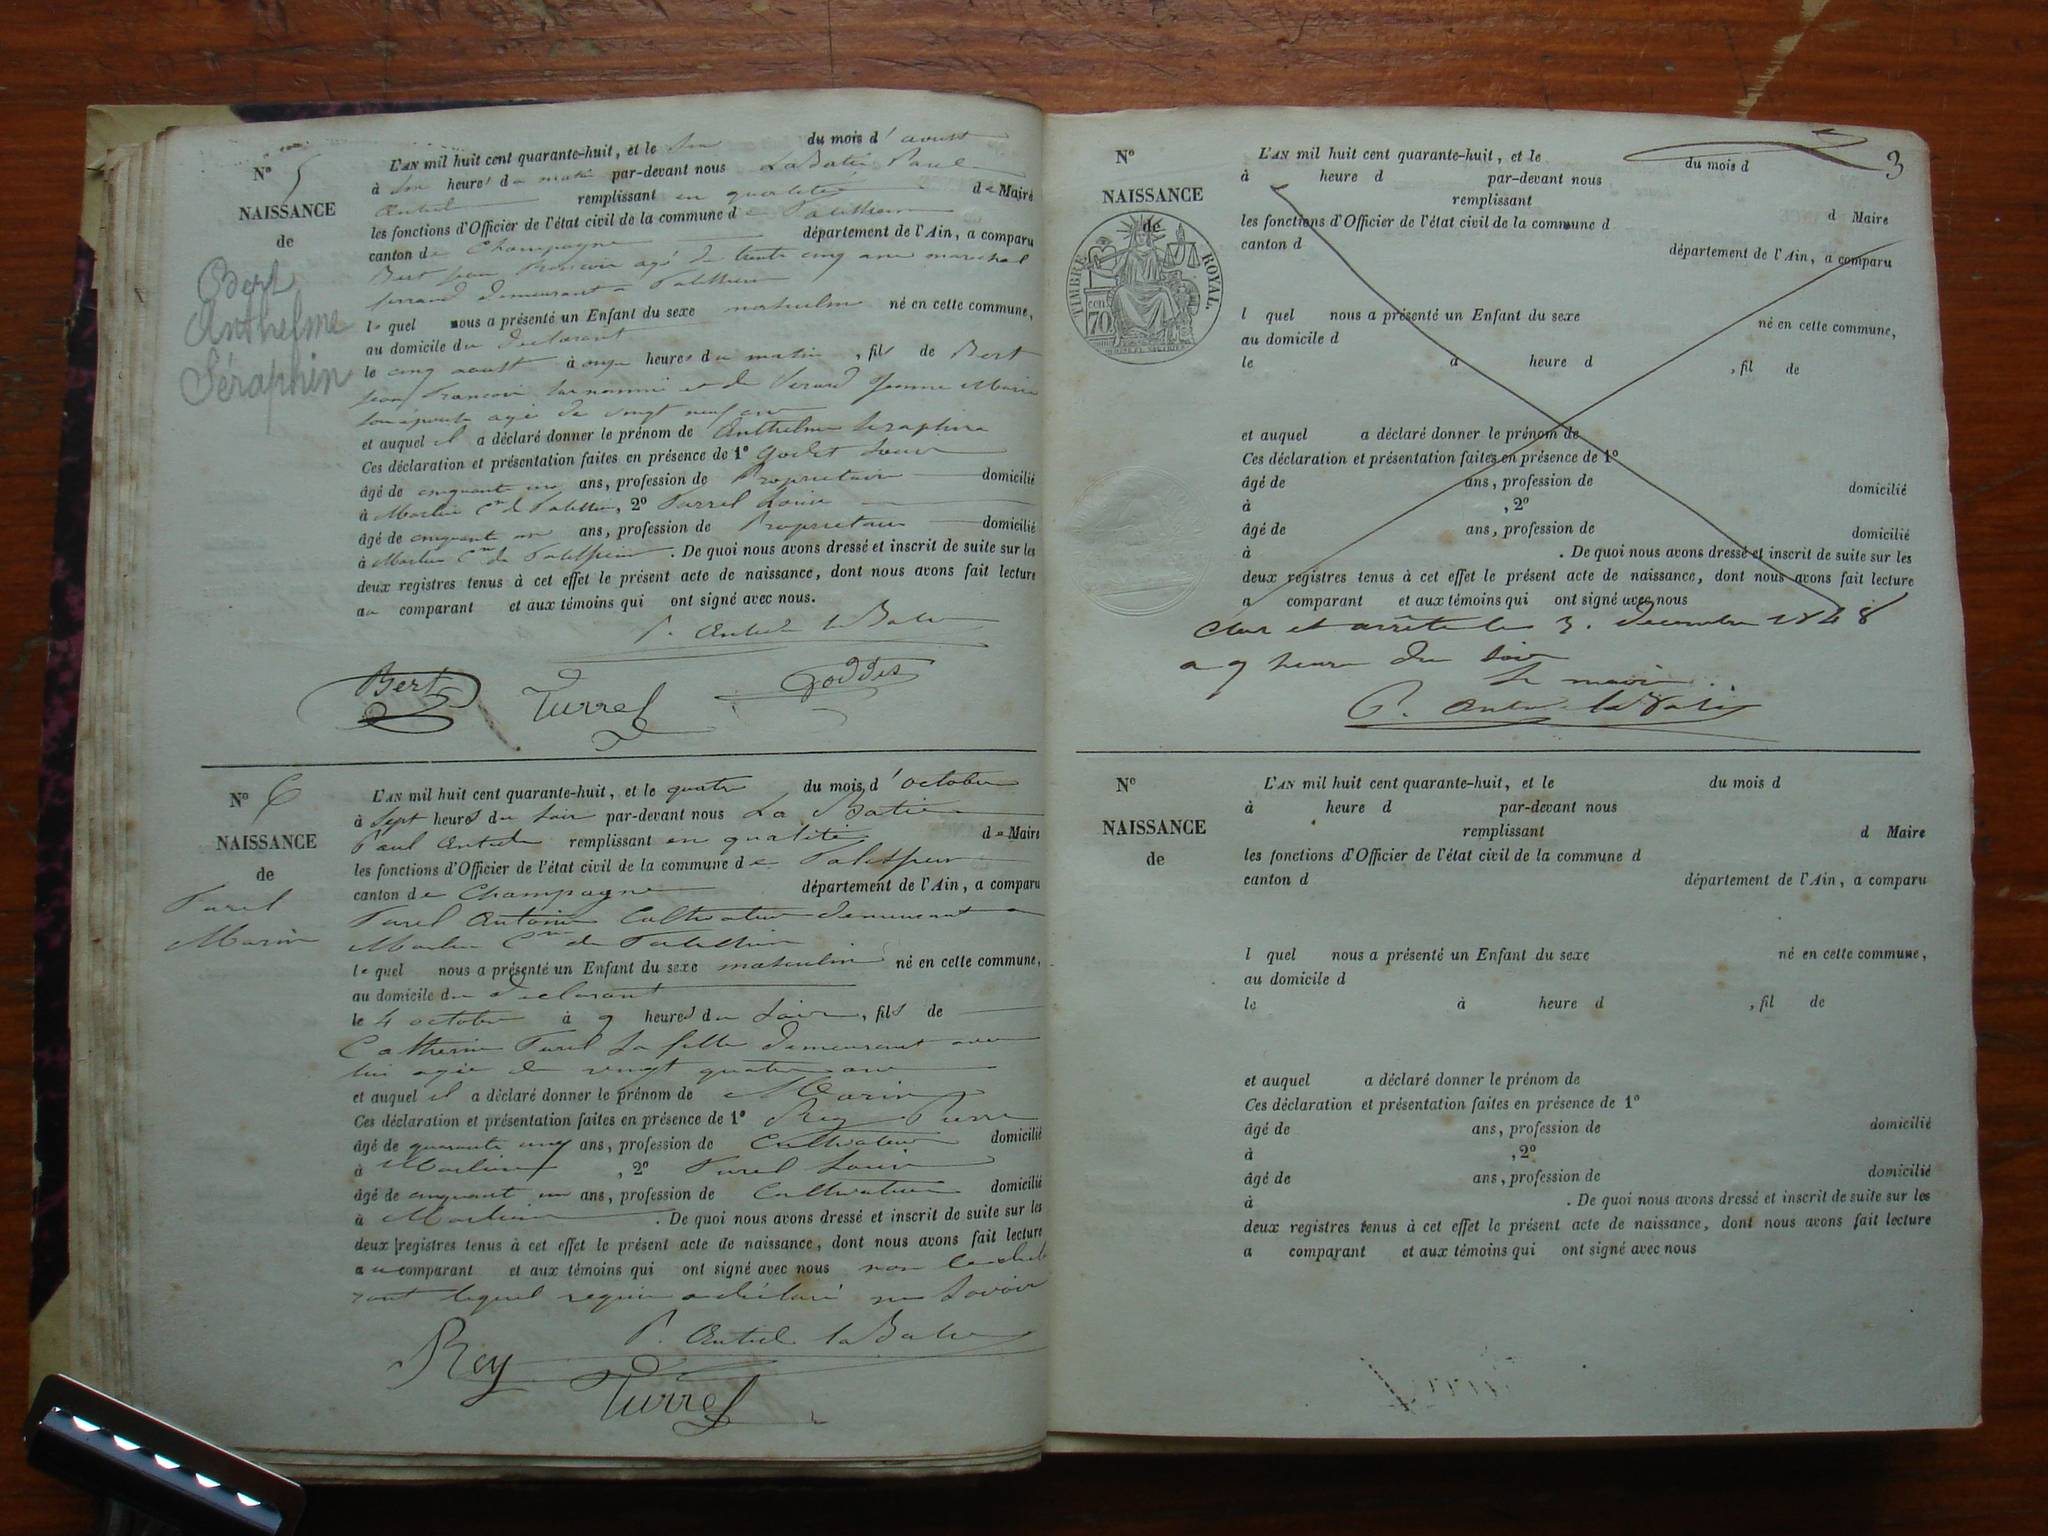 N° 5
NAISSANCE
de
Bert
Anthelme
Séraphin
L'AN mil huit cent quarante-huit, et le six du mois d'aoust
à six heures du matin par-devant nous La Batie Paul
remplissant en qualité de Maire
les fonctions d'Officier de l'état civil de la commune de
canton de Champagne département de l'Ain, a comparu
Bert jean francois agé de trente cinq ans marechal
ferrand demeurant a
lequel nous a présenté un Enfant du sexe masculin né en cette commune,
au domicile du declarant
le cinq aoust à onze heures du matin, fils de Bert
jean francois surnommé et de Jeanne Marie
son épouse agé de vingt neuf ans
et auquel il a déclaré donner le prénom de Anthelme Seraphin
Ces déclaration et présentation faites en présence de 1°
âgé de cinquante ans, profession de Proprietaire domicilié
à, 2° Louis
âgé de cinquante un ans, profession de Proprietaire domicilié
à. De quoi nous avons dressé et inscrit de suite sur les
deux registres tenus à cet effet le présent acte de naissance, dont nous avons fait lecture
au comparant et aux témoins qui ont signé avec nous.
Bert Turrel Goddet
N° 6
NAISSANCE
de
Turel
Marin
L'AN mil huit cent quarante-huit, et le quatre du mois d'octobre
à sept heures du soir par-devant nous La Batie
Paul remplissant en qualité de Maire
les fonctions d'Officier de l'état civil de la commune de
canton de Champagne département de l'Ain, a comparu
Turel Antoine Cultivateur demeurant a
lequel nous a présenté un Enfant du sexe masculin né en cette commune,
au domicile du declarant
le 4 octobre à 9 heures du soir, fils de
Catherine Turel sa fille demeurant avec
lui agée de vingt quatre ans
et auquel il a déclaré donner le prénom de Marin
Ces déclaration et présentation faites en présence de 1° Rey Pierre
âgé de quarante cinq ans, profession de Cultivateur domicilié
à, 2° Turel Louis
âgé de cinquant un ans, profession de Cultivateur domicilié
à. De quoi nous avons dressé et inscrit de suite sur les
deux registres tenus à cet effet le présent acte de naissance, dont nous avons fait lecture
au comparant et aux témoins qui ont signé avec nous non
lequel requis a déclaré ne savoir
Rey
Turrel
3
N°
NAISSANCE
de
TIMBRE ROYAL
cen.
70
L'AN mil huit cent quarante-huit, et le du mois d
à heure d par-devant nous
remplissant d Maire
les fonctions d'Officier de l'état civil de la commune d
canton d département de l'Ain, a comparu
l quel nous a présenté un Enfant du sexe né en cette commune,
au domicile d
le à heure d, fil de
et auquel a déclaré donner le prénom de
Ces déclaration et présentation faites en présence de 1°
âgé de ans, profession de domicilié
à, 2°
âgé de ans, profession de domicilié
à. De quoi nous avons dressé et inscrit de suite sur les
deux registres tenus à cet effet le présent acte de naissance, dont nous avons fait lecture
a comparant et aux témoins qui ont signé avec nous
Clos et arrêté le 3. decembre 1848
a 9 heure du soir
le maire
N°
NAISSANCE
de
L'AN mil huit cent quarante-huit, et le du mois d
à heure d par-devant nous
remplissant d Maire
les fonctions d'Officier de l'état civil de la commune d
canton d département de l'Ain, a comparu
l quel nous a présenté un Enfant du sexe né en cette commune,
au domicile d
le à heure d, fil de
et auquel a déclaré donner le prénom de
Ces déclaration et présentation faites en présence de 1°
âgé de ans, profession de domicilié
à, 2°
âgé de ans, profession de domicilié
à. De quoi nous avons dressé et inscrit de suite sur les
deux registres tenus à cet effet le présent acte de naissance, dont nous avons fait lecture
a comparant et aux témoins qui ont signé avec nous